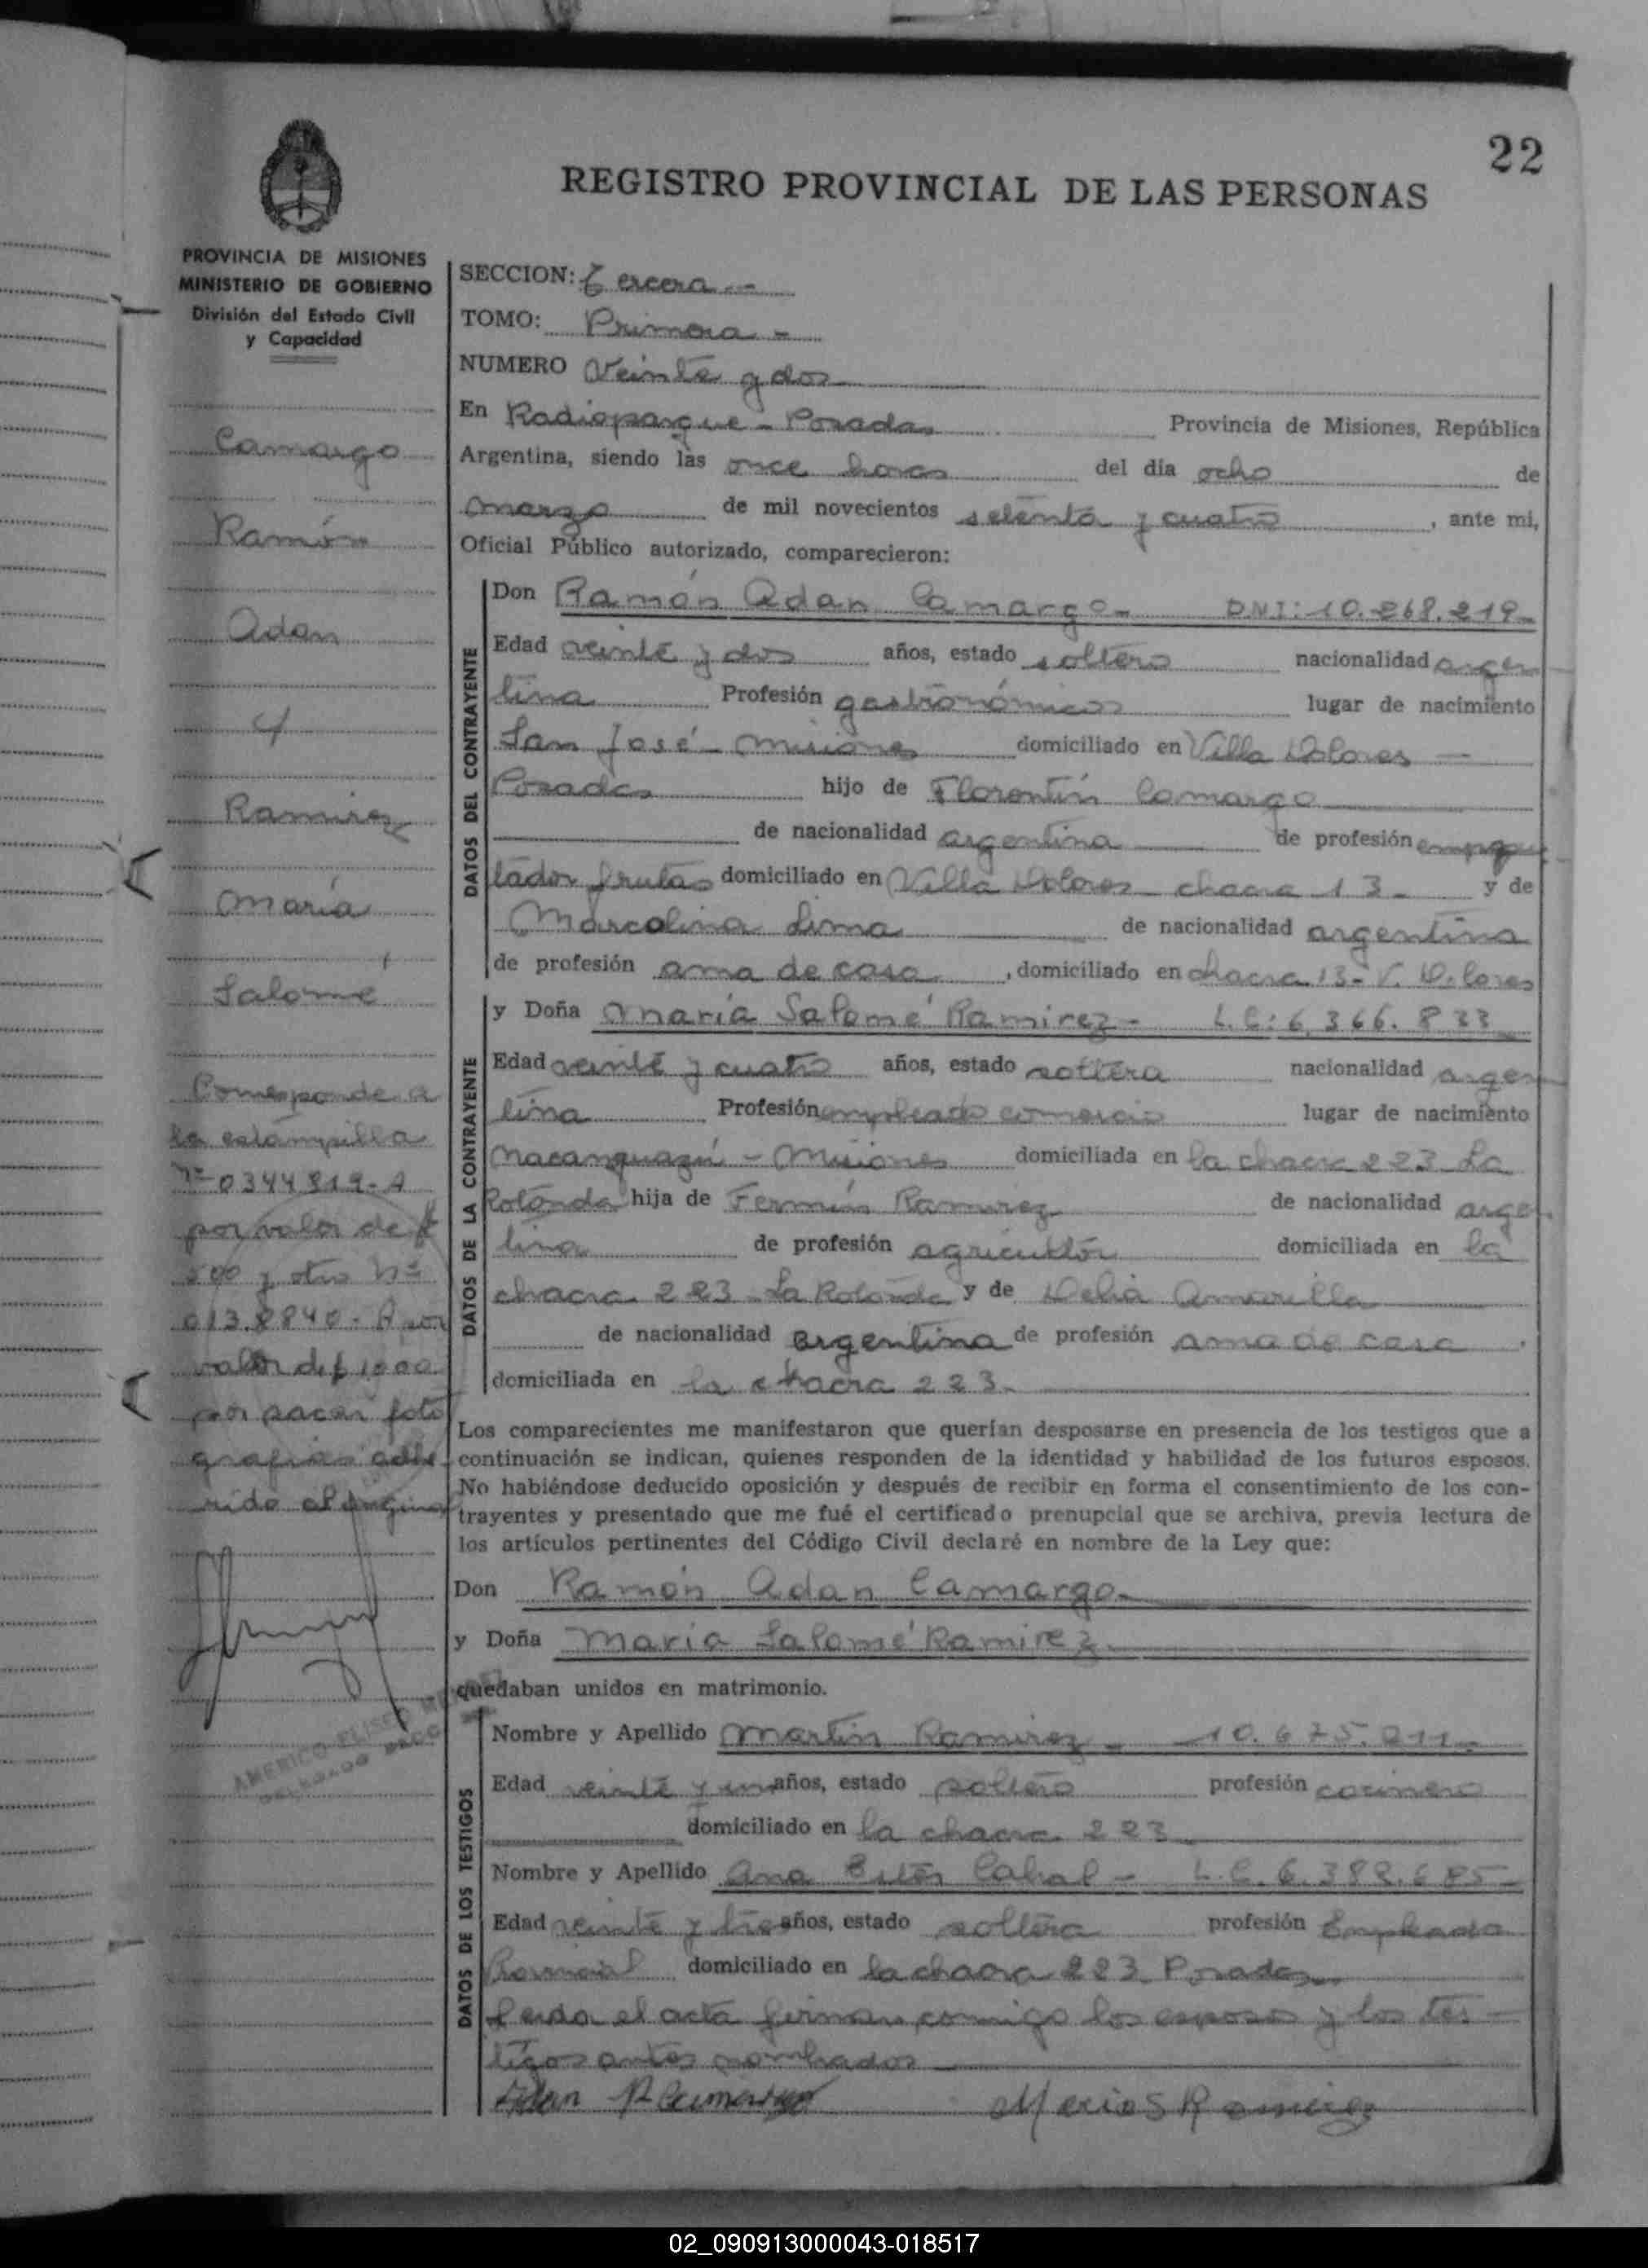 22
REGISTRO PROVINCIAL DE LAS PERSONAS
PROVINCIA DE MISIONES
MINISTERIO DE GOBIERNO
División del Estado Civil
y Capacidad
Camargo
Ramón
Adan
y
Ramirez
María
Salomé
Corresponde a
la estampilla
Nº 0344819-A
por valor de $
500 y otro Nº
0138840-A por
valor de $ 1000
por sacar foto
grafías adhe
rido al original
AMERICO ELISEO
SECCION: Tercera.-
TOMO: Primera -
NUMERO Veinte y dos
En Radioparque - Posadas Provincia de Misiones, República
Argentina, siendo las once horas del día ocho de
marzo de mil novecientos setenta y cuatro, ante mi,
Oficial Público autorizado, comparecieron:
DATOS DEL CONTRAYENTE
Don Ramón Adan Camargo- DNI: 10.268.219-
Edad veinte y dos años, estado soltero nacionalidad argen
tina Profesión gastronómico lugar de nacimiento
San José - Misiones domiciliado en Villa Dolores -
Posadas hijo de Florentín Camargo
de nacionalidad argentina de profesión
frutas domiciliado en Villa Dolores chacra 13- y de
Marcolina Lima de nacionalidad argentina
de profesión ama de casa, domiciliado en chacra 13- V. Dolores
DATOS DE LA CONTRAYENTE
y Doña María Salomé Ramirez - L.C: 6.366.833
Edad veinte y cuatro años, estado soltera nacionalidad argen
tina Profesión empleada comercio lugar de nacimiento
Nacanguazú - Misiones domiciliada en la chacra 223 La
Rotonda hija de Fermín Ramirez de nacionalidad argen
tina de profesión agricultor domiciliada en la
chacra 223 - La Rotonda y de Delia Amarilla
de nacionalidad argentina de profesión ama de casa
domiciliada en la chacra 223.
Los comparecientes me manifestaron que querían desposarse en presencia de los testigos que a
continuación se indican, quienes responden de la identidad y habilidad de los futuros esposos.
No habiéndose deducido oposición y después de recibir en forma el consentimiento de los con-
trayentes y presentado que me fué el certificado prenupcial que se archiva, previa lectura de
los artículos pertinentes del Código Civil declaré en nombre de la Ley que:
Don Ramón Adan Camargo-
y Doña María Salomé Ramirez
quedaban unidos en matrimonio.
DATOS DE LOS TESTIGOS
Nombre y Apellido Martín Ramirez - 10.675.211-
Edad veinte y un años, estado soltero profesión cocinero
domiciliado en la chacra 223
Nombre y Apellido Ana Ester Cabral - L.C. 6.382.685-
Edad veinte y tres años, estado soltera profesión Empleada
Provincial domiciliado en la chacra 223 Posadas
Leída el acta firman conmigo los esposos y los tes-
tigos antes nombrados
Adan R Camargo Maria S Ramirez
02_090913000043-018517